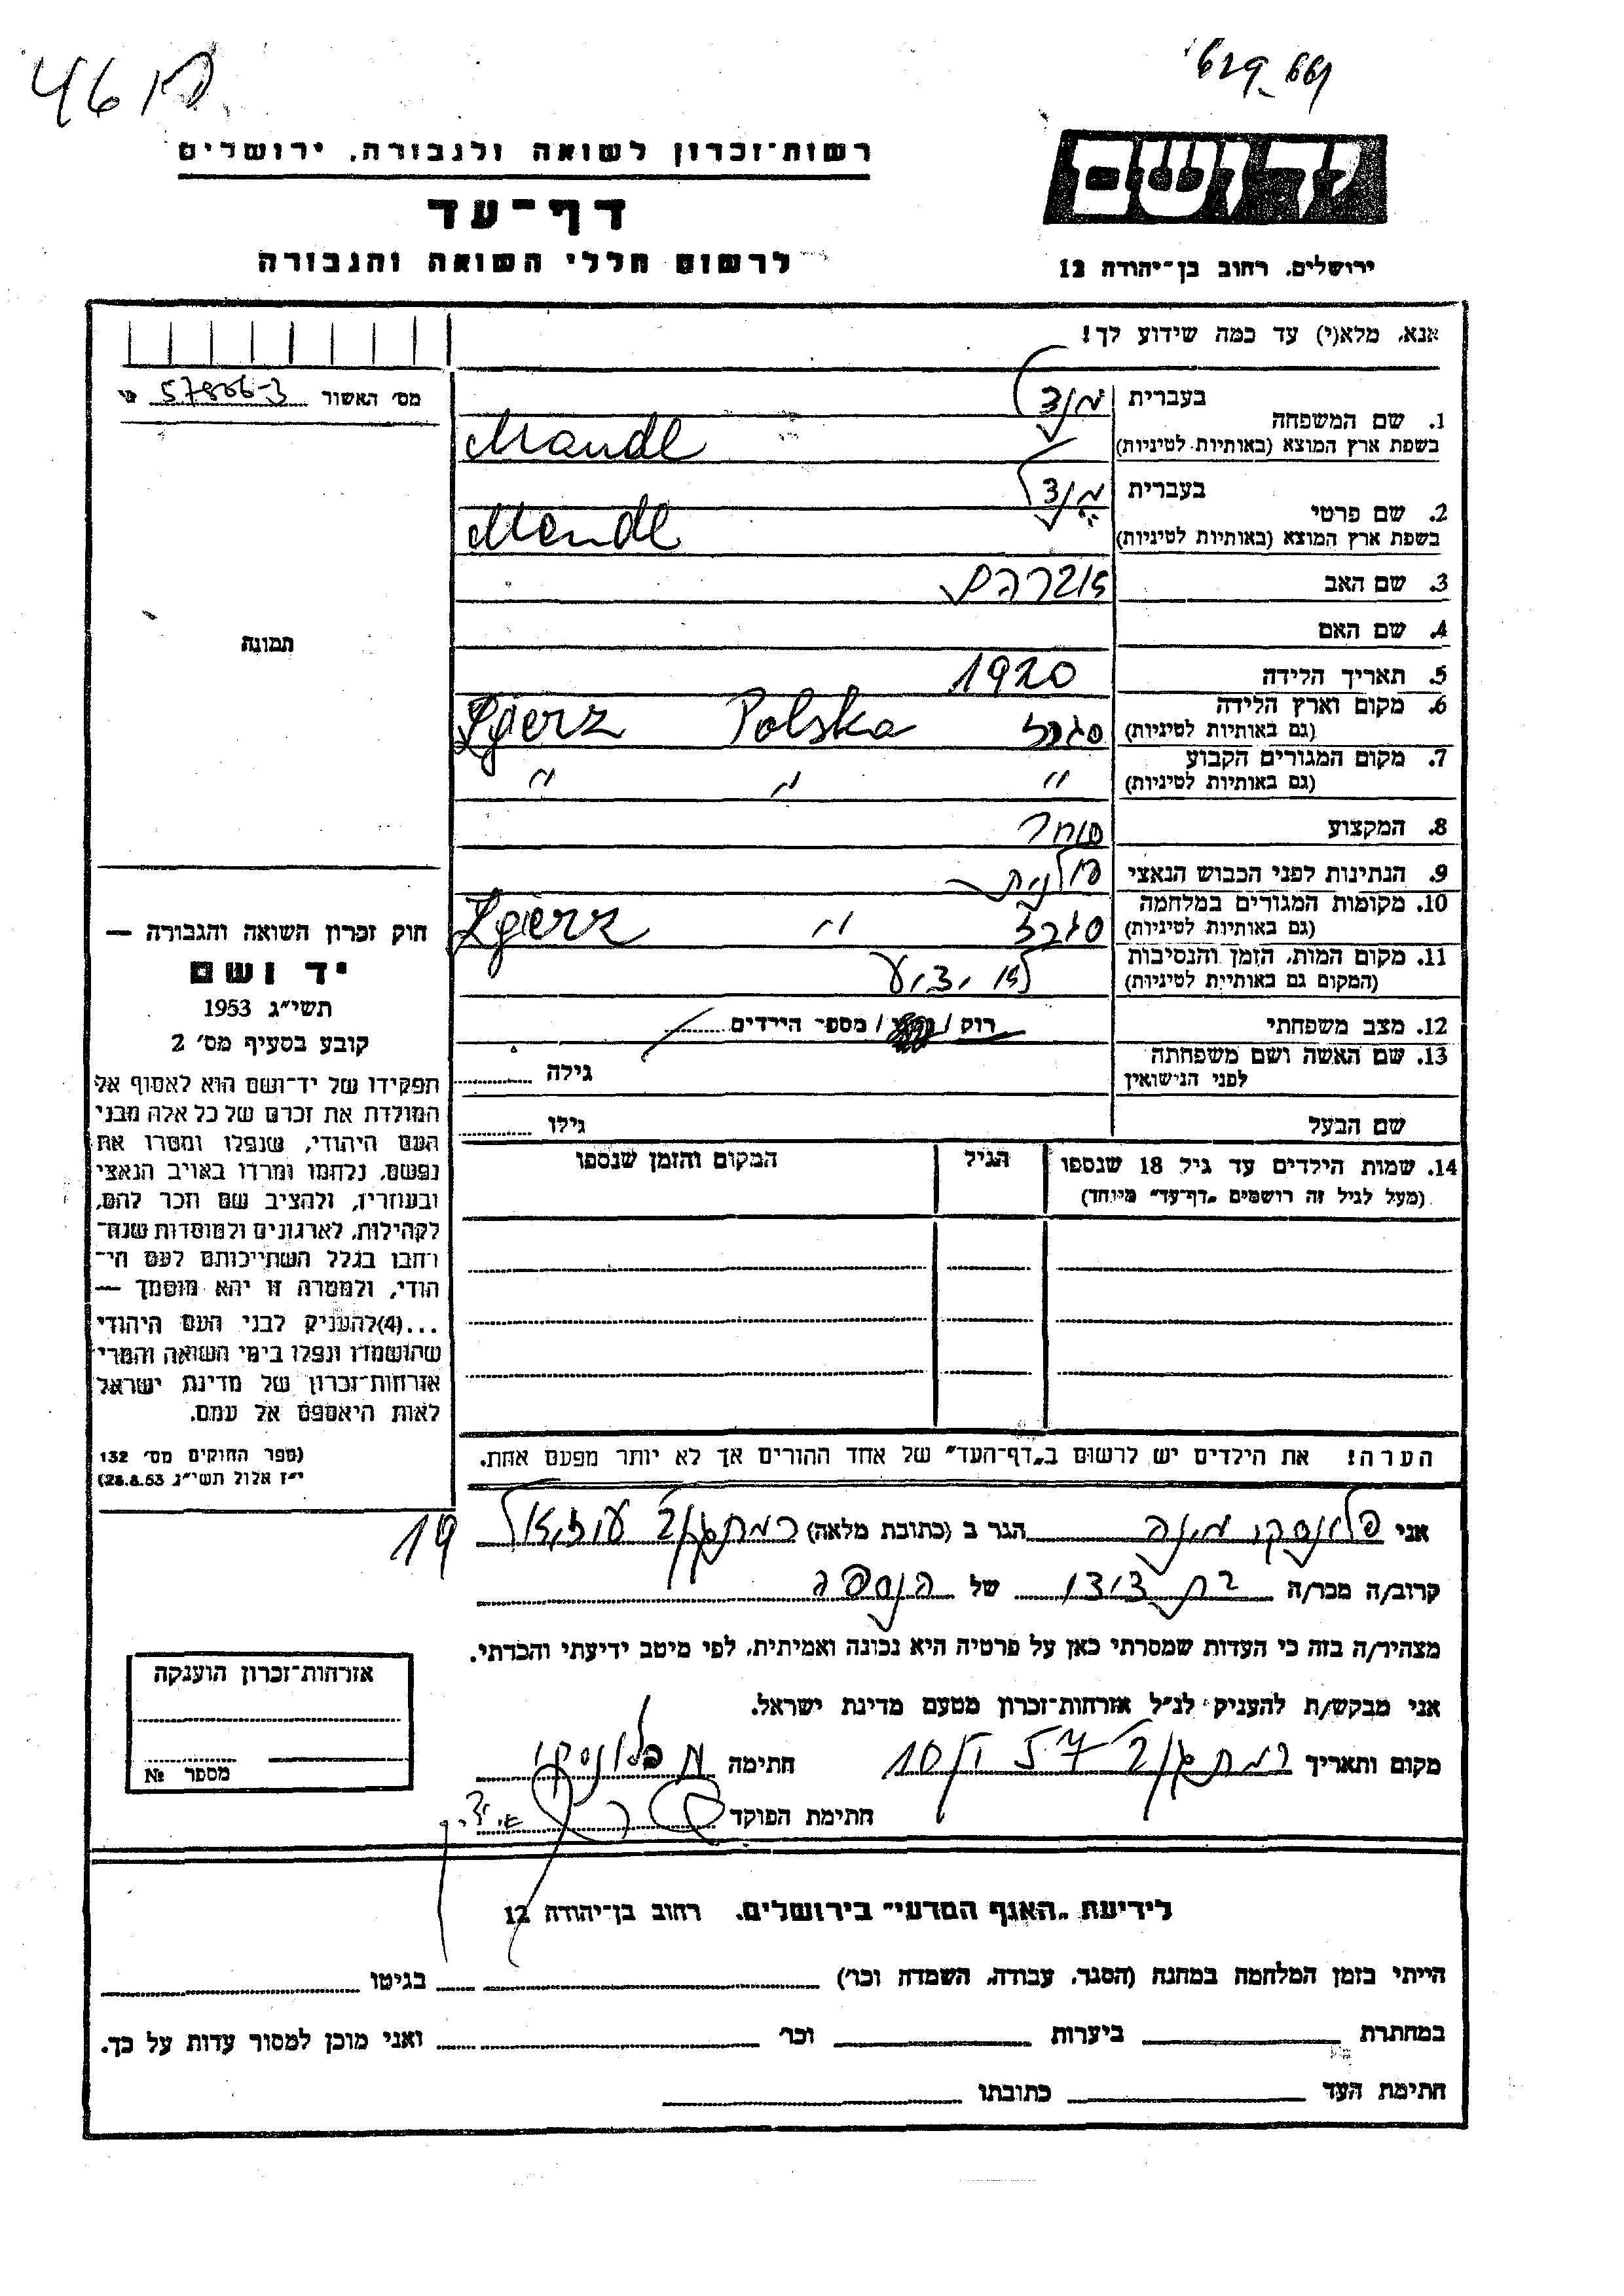 46
רשות־זכרון לשואה ולגבורה, ירושלים
יד ושם
דף־עד
לרשום חללי השואה והגבורה
ירושלים, רחוב בן־יהודה 12
אנא, מלא(י) עד כמה שידוע לך!
מס׳ האשור 57806-3
1. שם המשפחה
בעברית מנדל
בשפת ארץ המוצא (באותיות לטיניות) Mandl
2. שם פרטי
בעברית מנדל
בשפת ארץ המוצא (באותיות לטיניות) Mendl
3. שם האב אברהם
4. שם האם
5. תאריך הלידה 1920
6. מקום וארץ הלידה
(גם באותיות לטיניות) זגרז Polska Zgierz
7. מקום המגורים הקבוע
(גם באותיות לטיניות) " " "
8. המקצוע סוחר
9. הנתינות לפני הכבוש הנאצי פולנית
10. מקומות המגורים במלחמה
(גם באותיות לטיניות) " Zgierz
11. מקום המות, הזמן והנסיבות
(המקום גם באותיות לטיניות) לא ידוע
12. מצב משפחתי רוק / / מספר הילדים
13. שם האשה ושם משפחתה
לפני הנישואין גילה
שם הבעל גילו
14. שמות הילדים עד גיל 18 שנספו
(מעל לגיל זה רושמים „דף־עד" מיוחד)
הגיל
המקום והזמן שנספו
הערה! את הילדים יש לרשום ב„דף־העד" של אחד ההורים אך לא יותר מפעם אחת.
תמונה
חוק זכרון השואה והגבורה —
יד ושם
תשי"ג 1953
קובע בסעיף מס׳ 2
תפקידו של יד־ושם הוא לאסוף אל
המולדת את זכרם של כל אלה מבני
העם היהודי, שנפלו ומסרו את
נפשם, נלחמו ומרדו באויב הנאצי
ובעוזריו, ולהציב שם וזכר להם,
לקהילות, לארגונים ולמוסדות שנח־
רבו בגלל השתייכותם לעם הי־
הודי, ולמטרה זו יהא מוסמך —
...(4)להעניק לבני העם היהודי
שהושמדו ונפלו בימי השואה והמרי
אזרחות־זכרון של מדינת ישראל
לאות היאספם אל עמם.
(ספר החוקים מס׳ 132
י"ז אלול תשי"ג 28.8.53)
אני פלונסקי מינה הגר ב (כתובת מלאה) רמת גן עוזיאל 19
קרוב/ה מכר/ה בת דודו של הנספה
מצהיר/ה בזה כי העדות שמסרתי כאן על פרטיה היא נכונה ואמיתית, לפי מיטב ידיעתי והכרתי.
אני מבקש/ת להעניק לנ"ל אזרחות־זכרון מטעם מדינת ישראל.
מקום ותאריך רמת גן חתימה מ פלונסקי
חתימת הפוקד
אזרחות־זכרון הוענקה
מספר №
לידיעת „האגף המדעי" בירושלים, רחוב בן־יהודה 12
הייתי בזמן המלחמה במחנה (הסגר, עבודה, השמדה וכו׳) בגיטו
במחתרת ביערות וכו׳ ואני מוכן למסור עדות על כך.
חתימת העד כתובתו